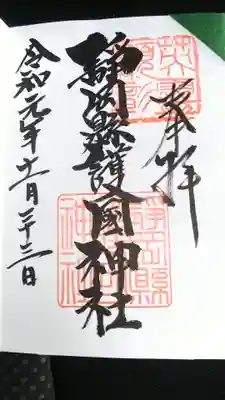 奉拝
静岡縣護國神社
令和元年十一月二十三日
靜岡縣護國神社